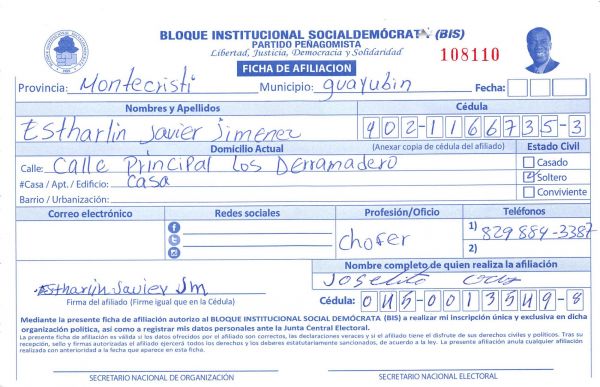 BLOQUE INSTITUCIONAL SOCIALDEMÓCRATA (BIS)
PARTIDO PEÑAGOMISTA
Libertad, Justicia, Democracia y Solidaridad
108110
FICHA DE AFILIACION
Provincia: Montecristi Municipio: guayubin Fecha:
Nombres y Apellidos Cédula
Estharlin Javier Jimenez 402-1166735-3
Domicilio Actual (Anexar copia de cédula del afiliado) Estado Civil
Calle: Calle Principal Los Derramadero Casado
#Casa / Apt. / Edificio: Casa Soltero
Barrio / Urbanización: Conviviente
Correo electrónico Redes sociales Profesión/Oficio Teléfonos
Chofer 1) 829 884-3387
2)
Nombre completo de quien realiza la afiliación
Estharlin Javier Jm Joselito
Firma del afiliado (Firme igual que en la Cédula) Cédula: 045-0013549-8
Mediante la presente ficha de afiliación autorizo al BLOQUE INSTITUCIONAL SOCIAL DEMÓCRATA (BIS) a realizar mi inscripción única y exclusiva en dicha
organización política, así como a registrar mis datos personales ante la Junta Central Electoral.
La presente ficha de afiliación es válida si los datos ofrecidos por el afiliado son correctos, las declaraciones veraces y si el afiliado tiene el disfrute de sus derechos civiles y políticos. Tras su
recepción, sello y firmas autorizadas el afiliado ejercerá todos los derechos y los deberes estatutariamente sancionados, de acuerdo a la ley. La presente afiliación anula cualquier afiliación
realizada con anterioridad a la fecha que aparece en esta ficha.
SECRETARIO NACIONAL DE ORGANIZACIÓN SECRETARIO NACIONAL ELECTORAL